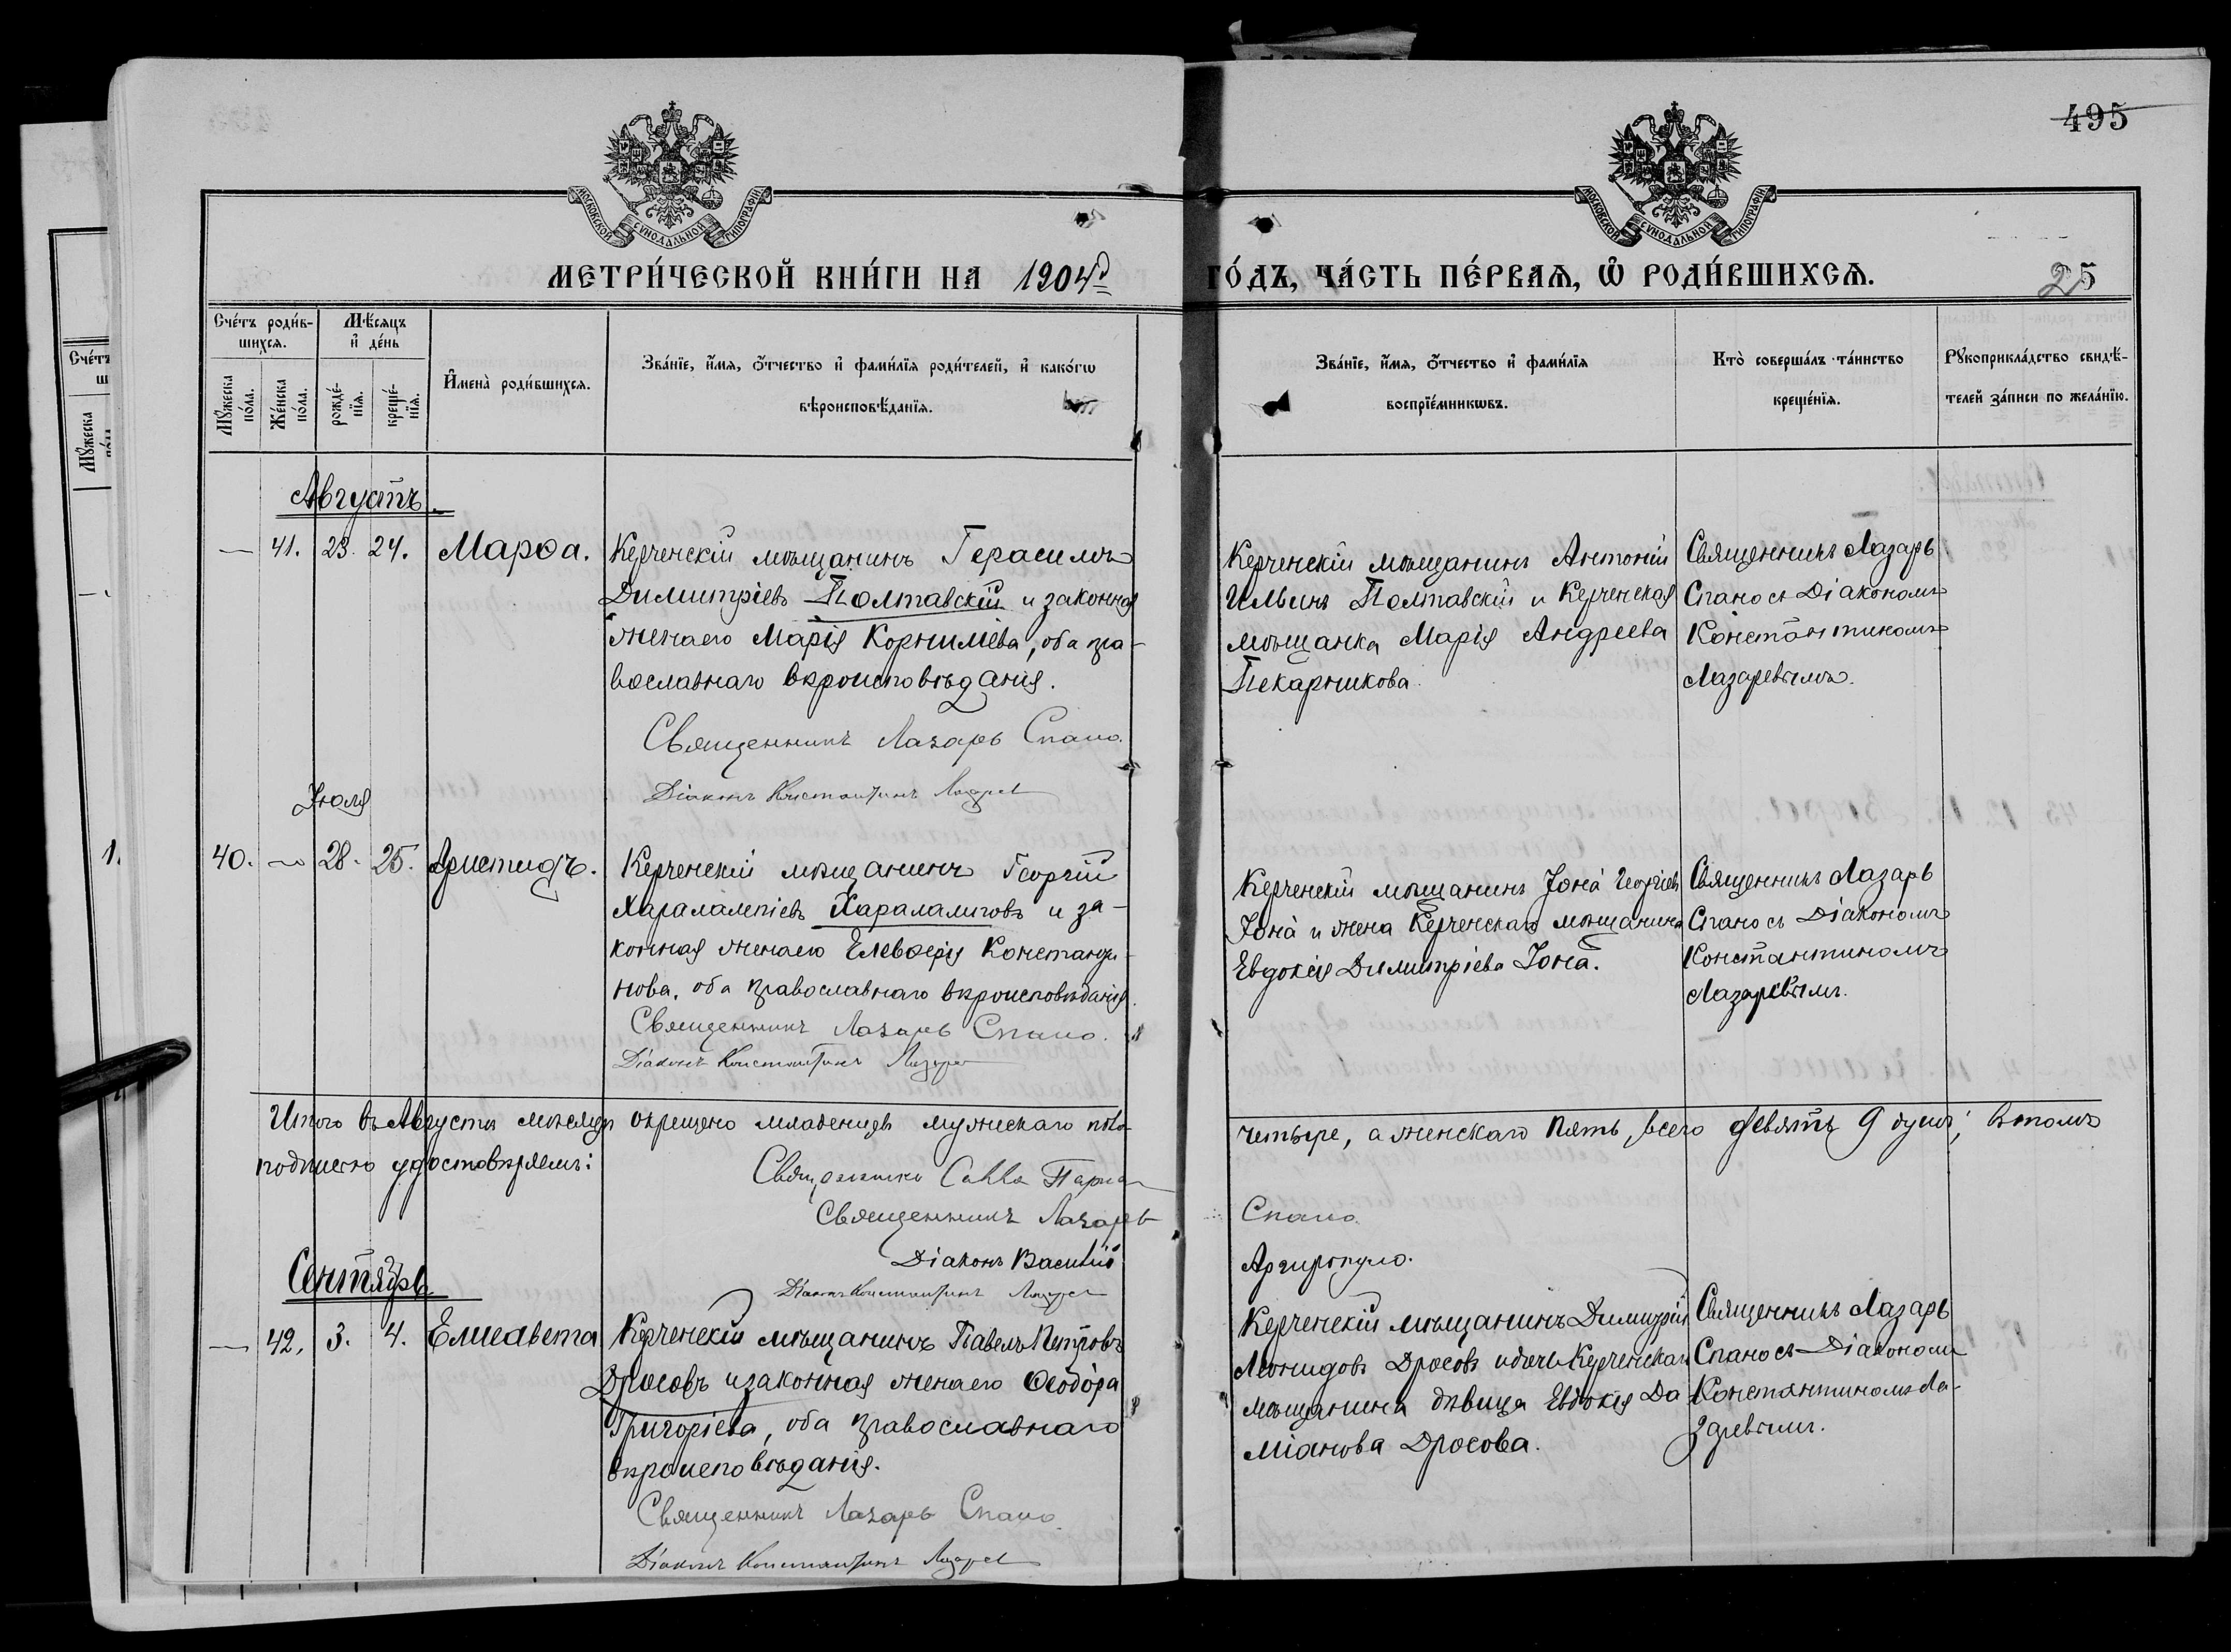 495
МОСКОВСКОЙ СѴНОДАЛЬНОЙ ТИПОГРАФІИ
МОСКОВСКОЙ СѴНОДАЛЬНОЙ ТИПОГРАФІИ
МЕТРИ́ЧЕСКОЙ КНИ́ГИ НА 1904 ГО́ДЪ, ЧА́СТЬ ПЕ́РВАѦ, Ѽ РОДИ́ВШИХСѦ.
25
Сче́тъ роди́в-
шихсѧ.
Мѣ́сѧцъ
и҆ де́нь
Мꙋ́жеска
по́ла.
Же́нска
по́ла.
рожде́-
нїѧ.
креще́-
нїѧ.
И҆мена̀ роди́вшихсѧ.
Зва́нїе, и҆́мѧ, ѻ҆́тчество и҆ фами́лїѧ роди́телей, и҆ како́гѡ
вѣроисповѣ́данїѧ.
Зва́нїе, и҆́мѧ, ѻ҆́тчество и҆ фами́лїѧ
воспрїе́мникѡвъ.
Кто̀ соверша́лъ та́инство
креще́нїѧ.
Рꙋкоприкла́дство свидѣ́-
телей за́писи по жела́нїю.
Августъ
— 41. 23. 24. Марѳа.
Керченскій мѣщанинъ Герасимъ
Димитріевъ Полтавскій и законная
жена его Марія Корниліева, оба пра-
вославнаго вѣроисповѣданія.
Священникъ Лазарь Спано.
Діаконъ Константинъ Лазарев
Керченскій мѣщанинъ Антоній
Ильинъ Полтавскій и Керченская
мѣщанка Марія Андреева
Пекарникова.
Священникъ Лазарь
Спано съ Діакономъ
Константиномъ
Лазаревымъ.
Іюля
40. — 28. 25. Аристидъ.
Керченскій мѣщанинъ Георгій
Харалампіевъ Хараламповъ и за-
конная жена его Елевѳерія Констанди-
нова, оба православнаго вѣроисповѣданія.
Священникъ Лазарь Спано.
Діаконъ Константинъ Лазарев
Керченскій мѣщанинъ Іона́ Георгіев
Іона́ и жена Керченскаго мѣщанина
Евдокія Димитріева Іона́.
Священникъ Лазарь
Спано съ Діакономъ
Константиномъ
Лазаревымъ.
Итого въ Августѣ мѣсяцѣ окрещено младенцевъ мужескаго пола четыре, а женскаго пять, всего девять 9 душъ; въ томъ
подписью удостовѣряемъ:
Священникъ Савва
Священникъ Лазарь Спано.
Діаконъ Василій Аргиропуло.
Діаконъ Константинъ Лазарев
Сентябрь
— 42. 3. 4. Елисавета
Керченскій мѣщанинъ Павелъ Петровъ
Дросовъ и законная жена его Ѳеодо́ра
Григоріева, оба православнаго
вѣроисповѣданія.
Священникъ Лазарь Спано
Діаконъ Константинъ Лазарев
Керченскій мѣщанинъ Димитрій
Леонидовъ Дросовъ и дочь Керченскаго
мѣщанина дѣвица Евдокія Да
міанова Дросова.
Священникъ Лазарь
Спано съ Діакономъ
Константиномъ Ла-
заревымъ.